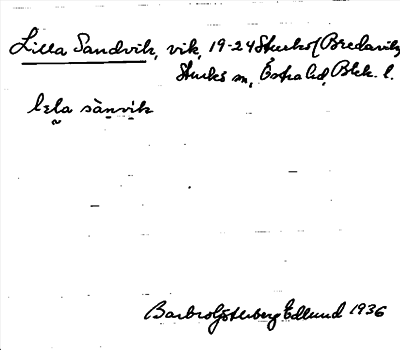 Lilla Sandvik, vik, 19-24 Sturkö (Bredavik,
Sturkö sn, Östra hd, Blek. l.
lɛla sànvik
Barbro Götherberg Edlund 1936